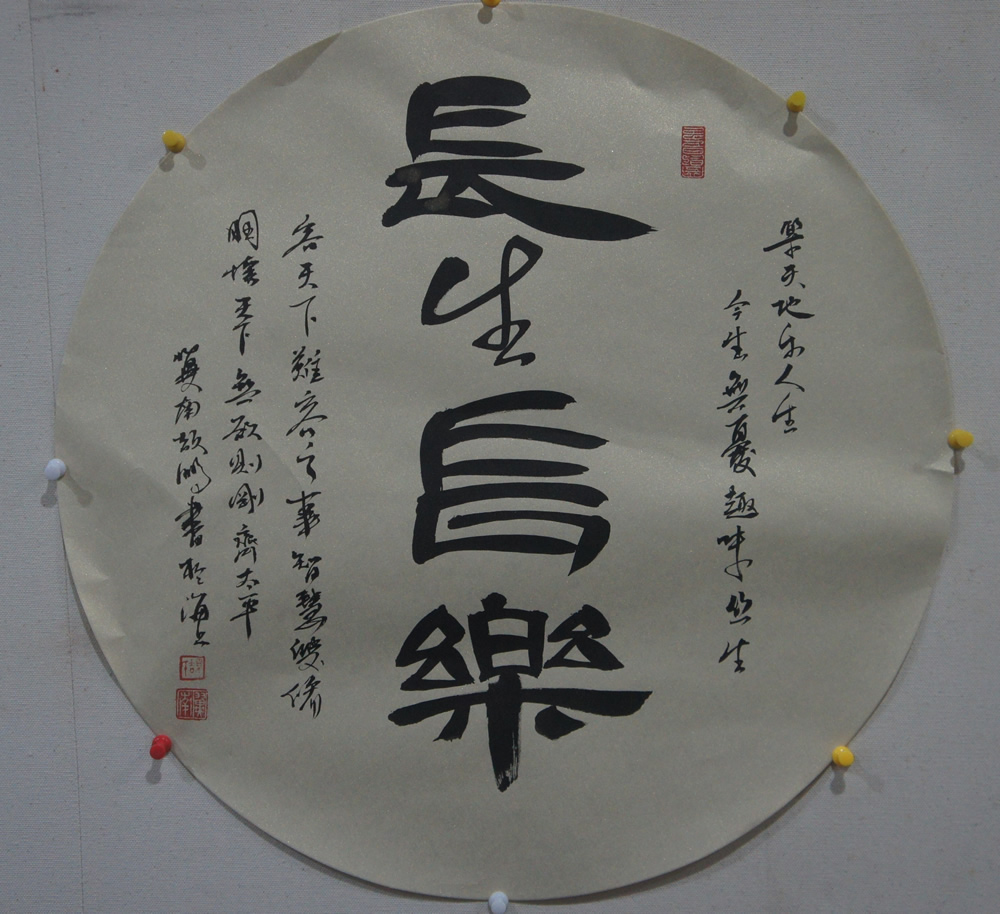 樂天地乐人生
今生無憂趣味丛生
長生長樂
容天下難容之事智慧雙修
胸懷天下無欲則剛齊太平
冀南鵬書於海上